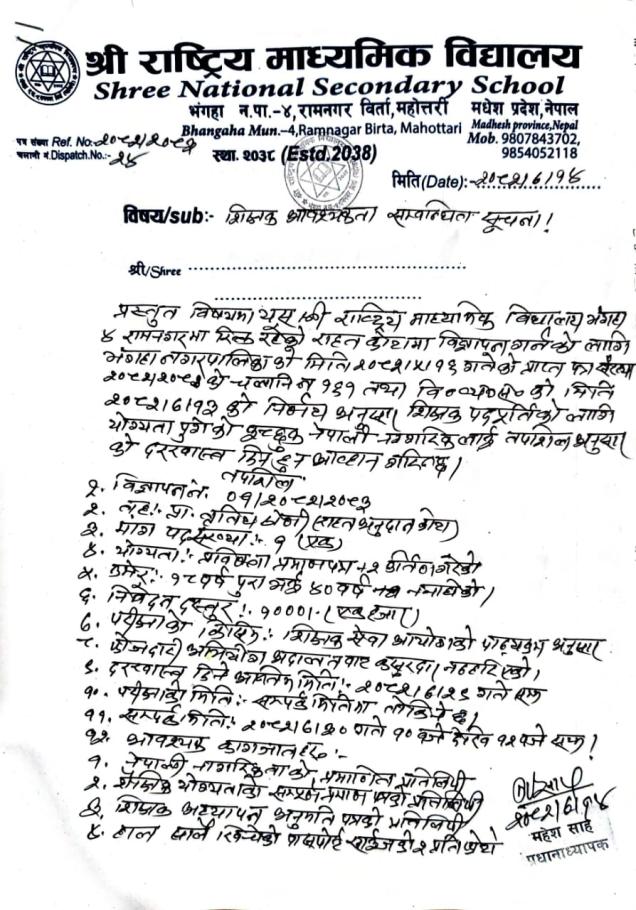 श्री राष्ट्रिय माध्यमिक विद्यालय
Shree National Secondary School
भंगहा न.पा.-४, रामनगर विर्ता, महोत्तरी मधेश प्रदेश, नेपाल
Bhangaha Mun.-4, Ramnagar Birta, Mahottari Madhesh province, Nepal
पत्र संख्या Ref. No:-२०८२/२०८३ Mob. 9807843702,
चलानी नं. Dispatch.No.:- २४ स्था. २०३८ (Estd.2038) 9854052118
मिति(Date):-२०८२/६/१४
विषय/sub:- शिक्षक आवश्यकता सम्बन्धित सूचना!
श्री/Shree
प्रस्तुत विषयमा यस श्री राष्ट्रिय माध्यमिक विद्यालय भंगहा
४ रामनगरमा रिक्त रहेको राहत कोटामा विज्ञापन गर्नको लागि
भंगहा नगरपालिकाको मिति २०८२/५/१६ गतेको प्राप्त पत्र संख्या
२०८२/२०८३ को च.नं. १९१ तथा वि०व्य०स० को मिति
२०८२/६/१३ को निर्णय अनुसार शिक्षक पदपूर्तिको लागि
योग्यता पुगेको इच्छुक नेपाली नागरिकलाई तपाशिल अनुसार
को दरखास्त दिनु हुन आव्हान गरिन्छ।
तपाशिल
१. विज्ञापन नं. ०१/२०८२/२०८३
२. तह:- प्रा. तृतिय श्रेणी (राहत अनुदान कोटा)
३. माग पद संख्या:- १ (एक)
४. योग्यता:- प्रविणता प्रमाणपत्र +२ उर्तिण गरेको
५. उमेर:- १८ वर्ष पुरा भई ४० वर्ष ननाघेको।
६. निवेदन दस्तुर:- १०००।- (एक हजार)
७. परीक्षाको किसिम:- शिक्षक सेवा आयोगको पाठ्यक्रम अनुसार
८. फौजदारी अभियोग अदालतबाट कसुरदार नठहरिएको।
९. दरखास्त दिने अन्तिम मिति:- २०८२/६/२९ गते सम्म
१०. परीक्षाको मिति:- सम्पर्क मितिमा तोकिने छ।
११. सम्पर्क मिति:- २०८२/६/३० गते १० बजे देखि १२ बजे सम्म!
१२. आवश्यक कागजातहरु:-
१. नेपाली नागरिकताको प्रमाणित प्रतिलिपी
२. शैक्षिक योग्यताको सम्पूर्ण प्रमाण पत्रको प्रतिलिपी
३. शिक्षक अध्यापन अनुमति पत्रको प्रतिलिपी
४. हाल सालै खिचेको पासपोर्ट साईजको २ प्रति फोटो
२०८२/६/१४
महेश साह
प्रधानाध्यापक